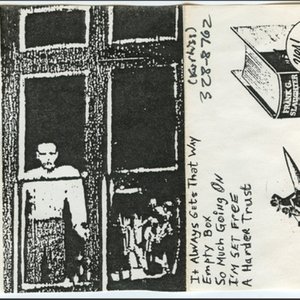 (Kurtiss)
328-8762
It Always Gets That Way
Empty Box
So Much Going On
I'm Set Free
A Harder Trust
FRANK G.
SLAUGHTER